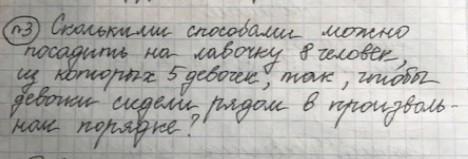 №3 Сколькими способами можно
посадить на лавочку 8 человек,
из которых 5 девочек, так, чтобы
девочки сидели рядом в произволь-
ном порядке?